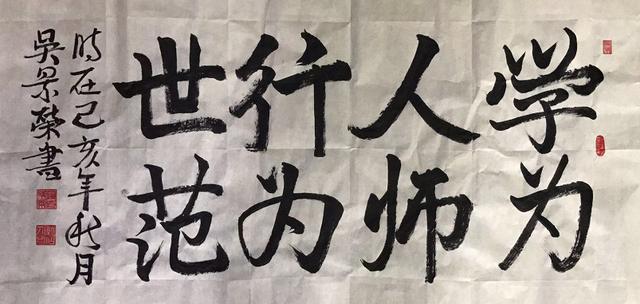 学为
人师
行为
世范
时在己亥年秋月
吴景荣书